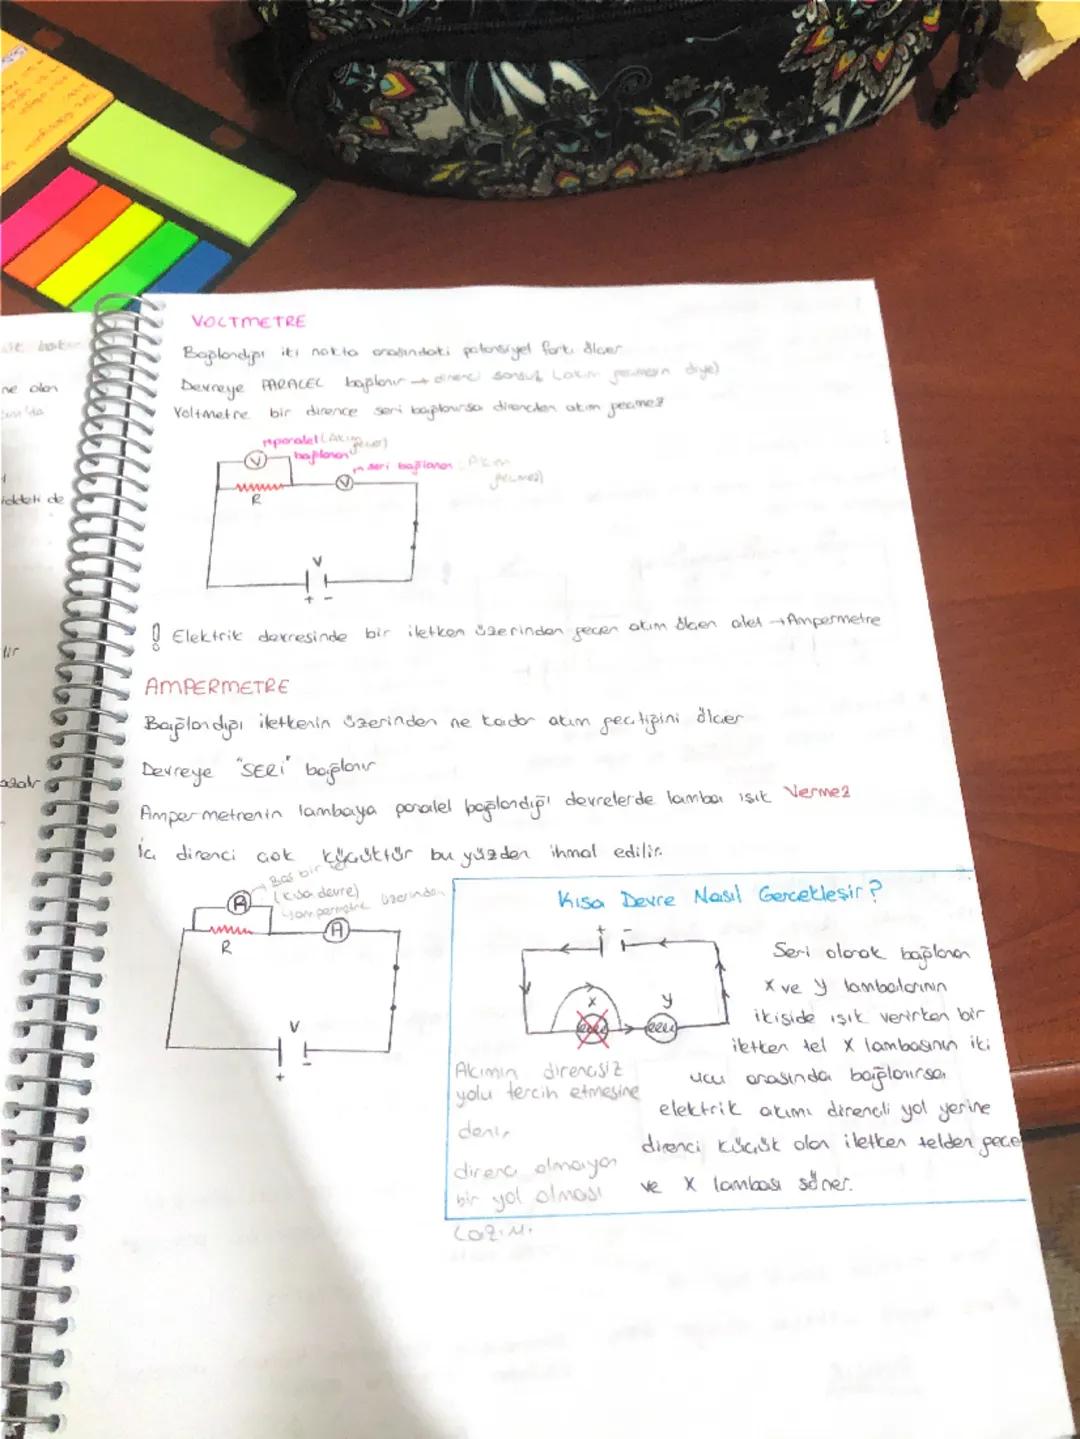 VOLTMETRE
Bağlandığı iki nokta arasındaki potansiyel farkı ölçer
Devreye PARALEL bağlanır → direnci sonsuz (akım geçmesin diye)
Voltmetre bir dirence seri bağlanırsa dirençten akım geçmez
paralel (Akım geçer)
bağlanan
seri bağlanan (Akım geçmez)
V
V
R
V
+ -
! Elektrik devresinde bir iletken üzerinden geçen akım ölçen alet → Ampermetre
AMPERMETRE
Bağlandığı iletkenin üzerinden ne kadar akım geçtiğini ölçer
Devreye "SERİ" bağlanır
Ampermetrenin lambaya paralel bağlandığı devrelerde lamba ışık Vermez
İç direnci çok küçüktür bu yüzden ihmal edilir.
Boş bir
(kısa devre)
ampermetre üzerinden
A
R
V
+ -
Kısa Devre Nasıl Gerçekleşir?
+ -
x
y
Seri olarak bağlanan
x ve y lambalarının
ikiside ışık verirken bir
iletken tel X lambasının iki
ucu arasında bağlanırsa,
elektrik akımı dirençli yol yerine
direnci küçük olan iletken telden geçer
ve X lambası söner.
Akımın dirençsiz
yolu tercih etmesine
denir
direnci olmayan
bir yol olması
Lazım.